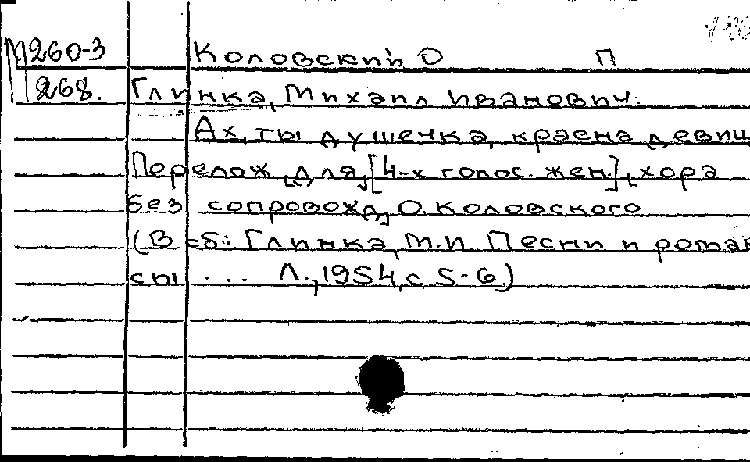 М260-3 Коловский О П
268. Глинка, Михаил Иванович.
Ах, ты душечка, красна девиц
Перелож. для [4-х голос. жен.] хора
без сопровожд. О. Коловского
(В сб.: Глинка, М.И. Песни и роман
сы ... Л., 1954, с 5-6.)